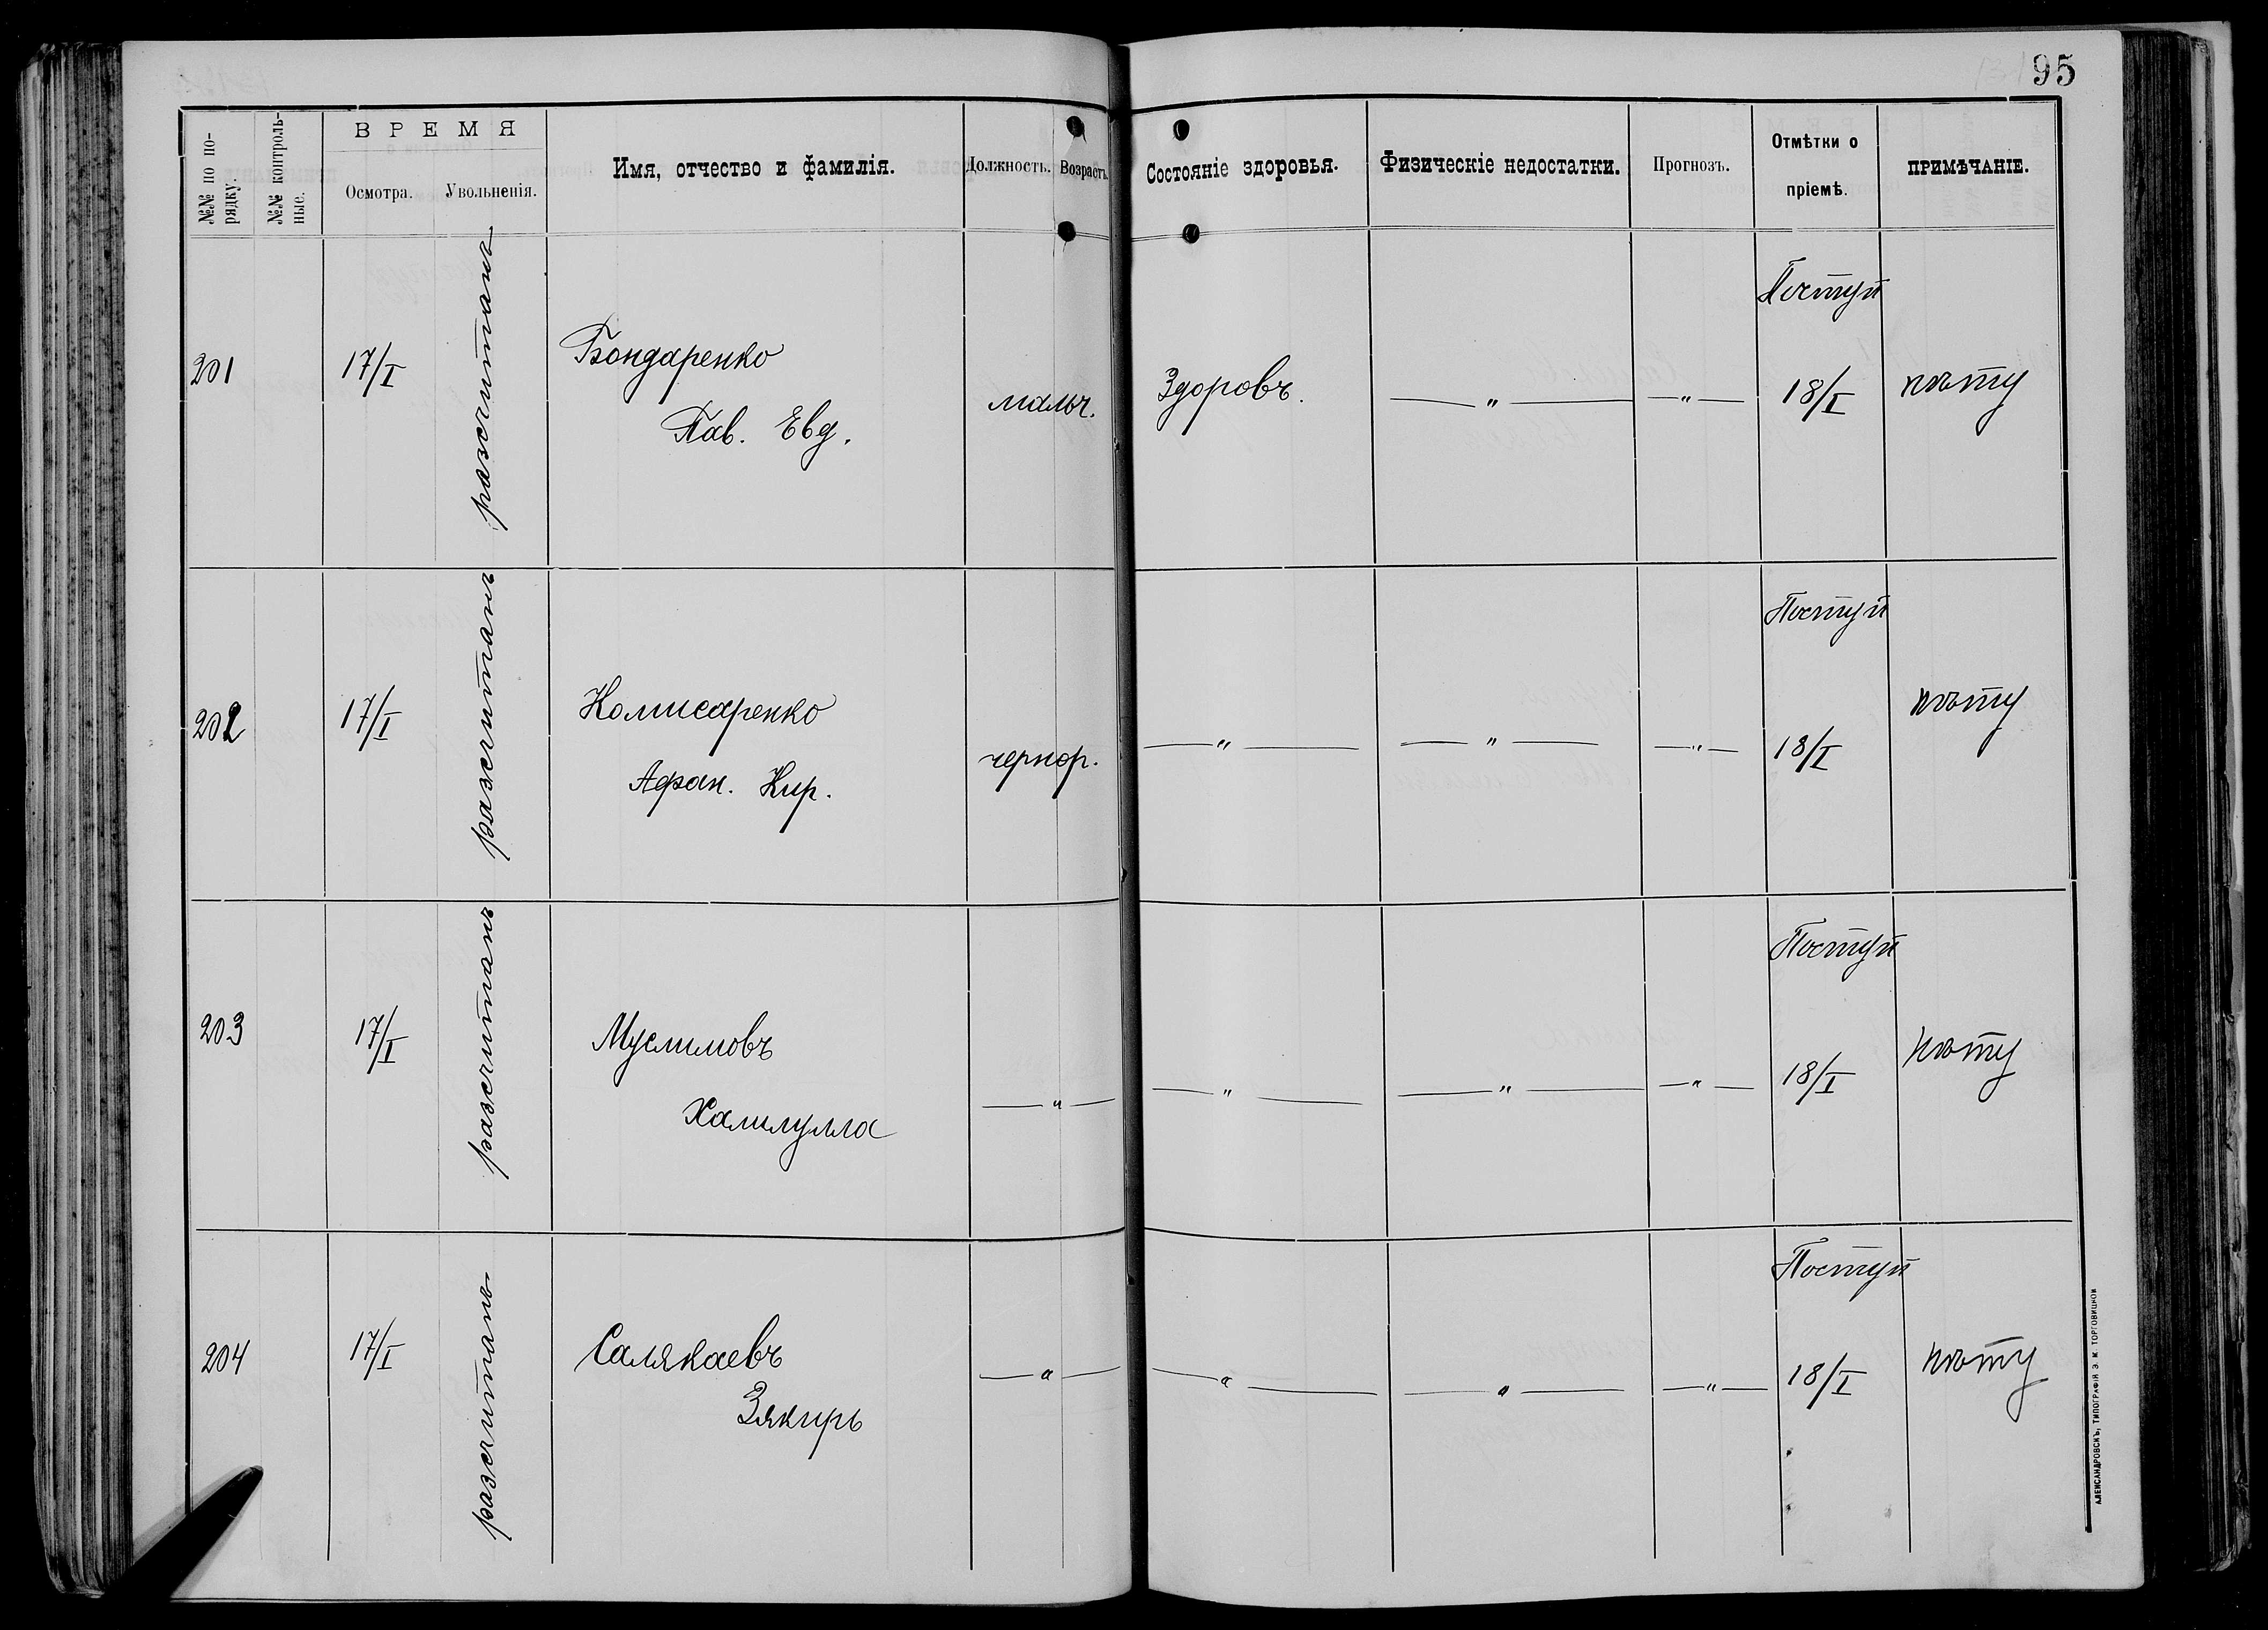 95
№№ по по-
рядку.
№№ контроль-
ные.
ВРЕМЯ
Осмотра.
Увольненія.
Имя, отчество и фамилія.
Должность.
Возрастъ.
Состояніе здоровья.
Физическіе недостатки.
Прогнозъ.
Отмѣтки о
пріемѣ.
ПРИМѢЧАНІЕ.
201
17/I
разсчитанъ
Бондаренко
Пав. Евд.
мальч.
Здоровъ.
— " —
— " —
Поступ
18/I
202
17/I
разсчитанъ
Комисаренко
Афан. Кир.
чернор.
— " —
— " —
— " —
Поступ
18/I
203
17/I
разсчитанъ
Муслимовъ
Халилулла
— " —
— " —
— " —
— " —
Поступ
18/I
204
17/I
разсчитанъ
Салякаевъ
Зякирь
— " —
— " —
— " —
— " —
Поступ
18/I
АЛЕКСАНДРОВСКЪ, ТИПОГРАФІЯ Э. М. ТОРГОВИЦКОЙ